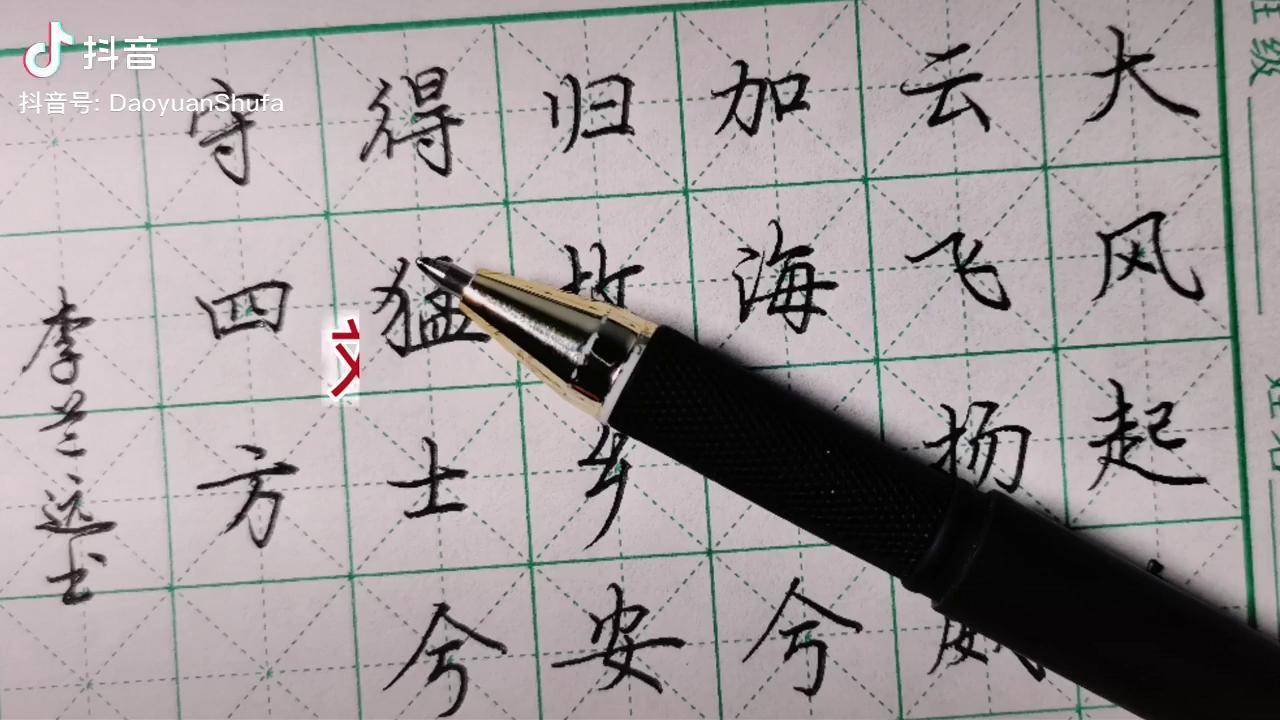 抖音
抖音号: DaoyuanShufa
级
大风起
云飞扬威
加海兮
归故乡安
得猛士兮
守四方
李兰远书